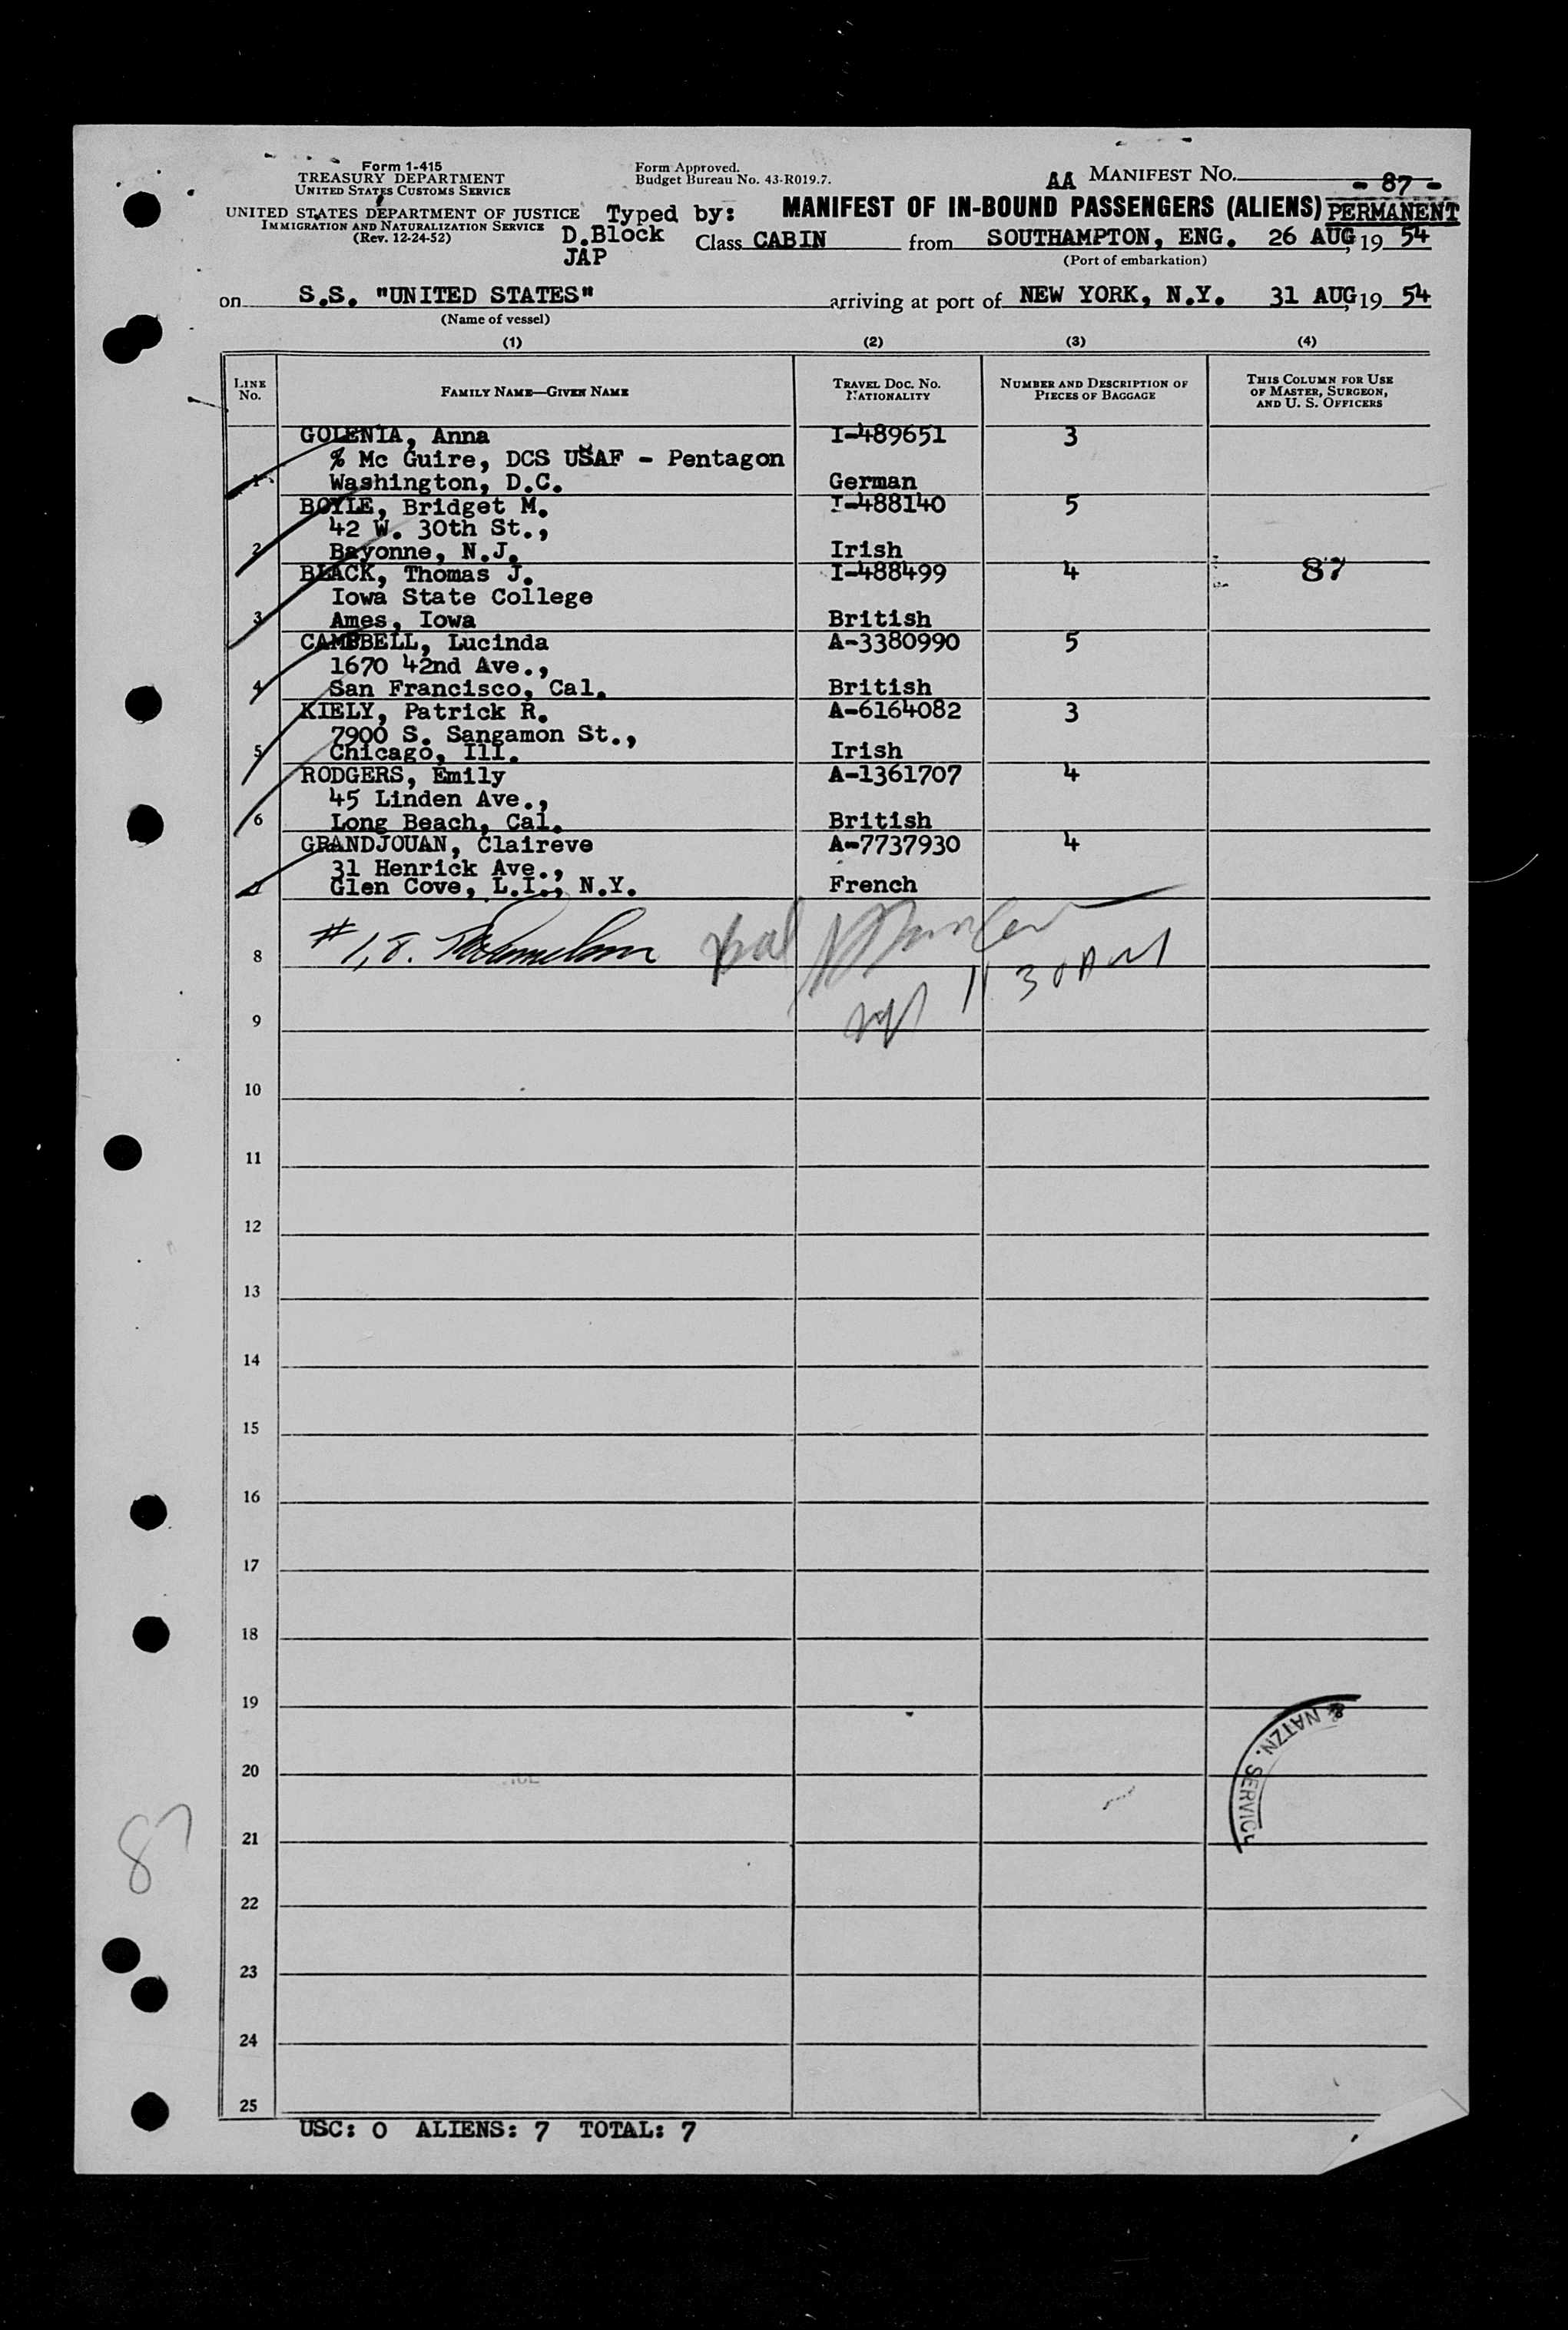 Form 1-415
TREASURY DEPARTMENT
UNITED STATES CUSTOMS SERVICE
UNITED STATES DEPARTMENT OF JUSTICE
IMMIGRATION AND NATURALIZATION SERVICE
(Rev. 12-24-52)
Form Approved.
Budget Bureau No. 43-R019.7.
Typed by:
D.Block
JAP
AA MANIFEST No. - 87 -
MANIFEST OF IN-BOUND PASSENGERS (ALIENS) PERMANENT
Class CABIN from SOUTHAMPTON, ENG. 26 AUG, 19 54
(Port of embarkation)
on S.S. "UNITED STATES" arriving at port of NEW YORK, N.Y. 31 AUG, 19 54
(Name of vessel)
(1) (2) (3) (4)
LINE No. FAMILY NAME—GIVEN NAME TRAVEL DOC. NO. NATIONALITY NUMBER AND DESCRIPTION OF PIECES OF BAGGAGE THIS COLUMN FOR USE OF MASTER, SURGEON, AND U. S. OFFICERS
GOLENIA, Anna I-489651 3
% Mc Guire, DCS USAF - Pentagon
1 Washington, D.C. German
BOYLE, Bridget M. I-488140 5
42 W. 30th St.,
2 Bayonne, N.J. Irish
BLACK, Thomas J. I-488499 4 87
Iowa State College
3 Ames, Iowa British
CAMPBELL, Lucinda A-3380990 5
1670 42nd Ave.,
4 San Francisco, Cal. British
KIELY, Patrick R. A-6164082 3
7900 S. Sangamon St.,
5 Chicago, Ill. Irish
RODGERS, Emily A-1361707 4
45 Linden Ave.,
6 Long Beach, Cal. British
GRANDJOUAN, Claireve A-7737930 4
31 Henrick Ave.,
7 Glen Cove, L.I., N.Y. French
8
11 30 AM
9
10
11
12
13
14
15
16
17
18
19
& NATZN. SERVICE
20
21
87
22
23
24
25
USC: 0 ALIENS: 7 TOTAL: 7